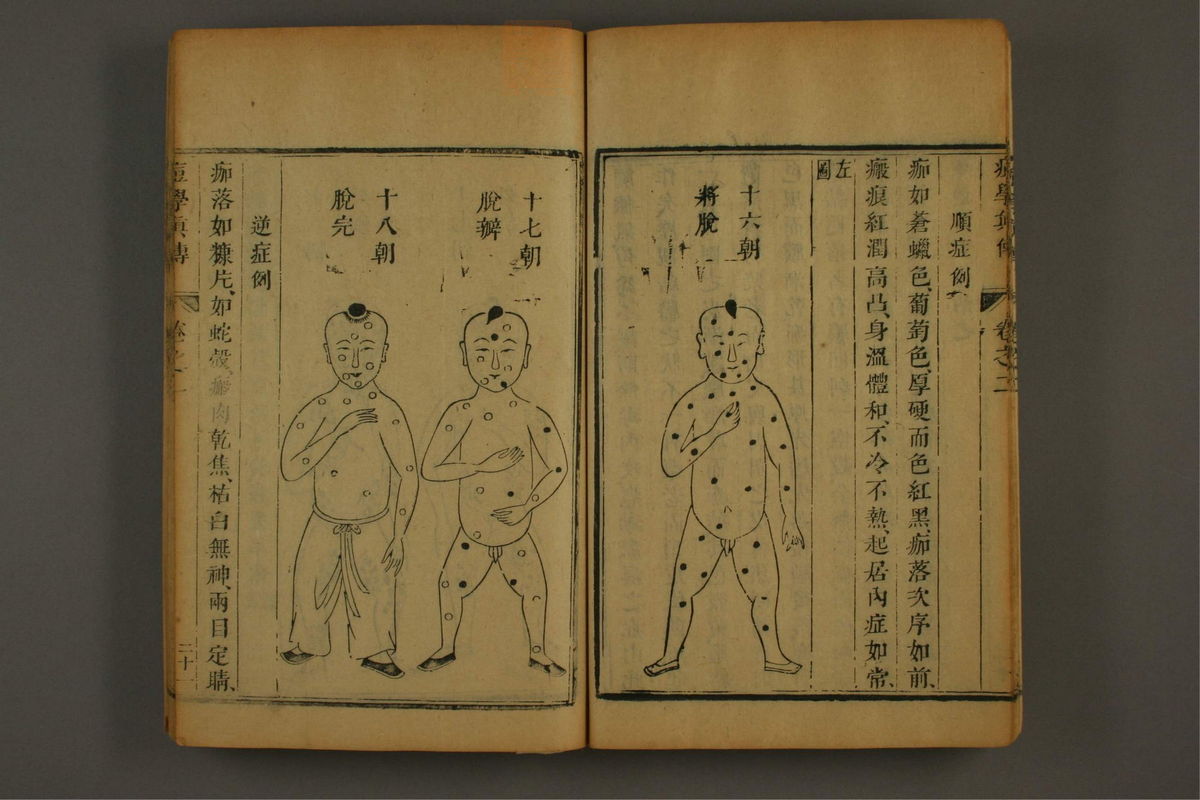 痘學真傳 卷之二
順症例
痂如蒼蠟色、葡萄色、厚硬而色紅黑、痂落次序如前、
瘢痕紅潤高凸、身溫體和、不冷不熱、起居內症如常、
左圖
十六朝
將脫
十七朝
脫瓣
十八朝
脫完
逆症例
痂落如糠片、如蛇殼、瘢肉乾焦、枯白無神、兩目定睛、
痘學真傳 卷之二 二十一